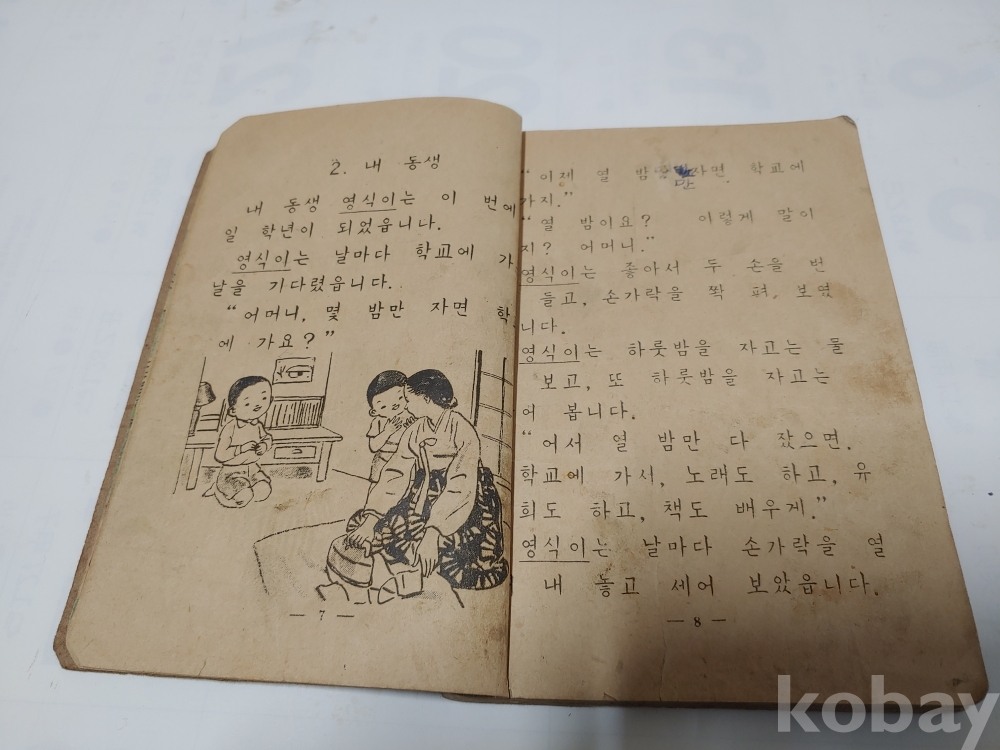 2. 내 동생
내 동생 영식이는 이 번에
일 학년이 되었읍니다.
영식이는 날마다 학교에 가
날을 기다렸읍니다.
"어머니, 몇 밤만 자면 학
에 가요?"
— 7 —
"이제 열 밤만 자면 학교에
가지."
"열 밤이요? 이렇게 말이
지? 어머니."
영식이는 좋아서 두 손을 번
들고, 손가락을 쫙 펴, 보였
니다.
영식이는 하룻밤을 자고는 물
보고, 또 하룻밤을 자고는
어 봅니다.
"어서 열 밤만 다 잤으면.
학교에 가서, 노래도 하고, 유
희도 하고, 책도 배우게."
영식이는 날마다 손가락을 열
내 놓고 세어 보았읍니다.
— 8 —
kobay